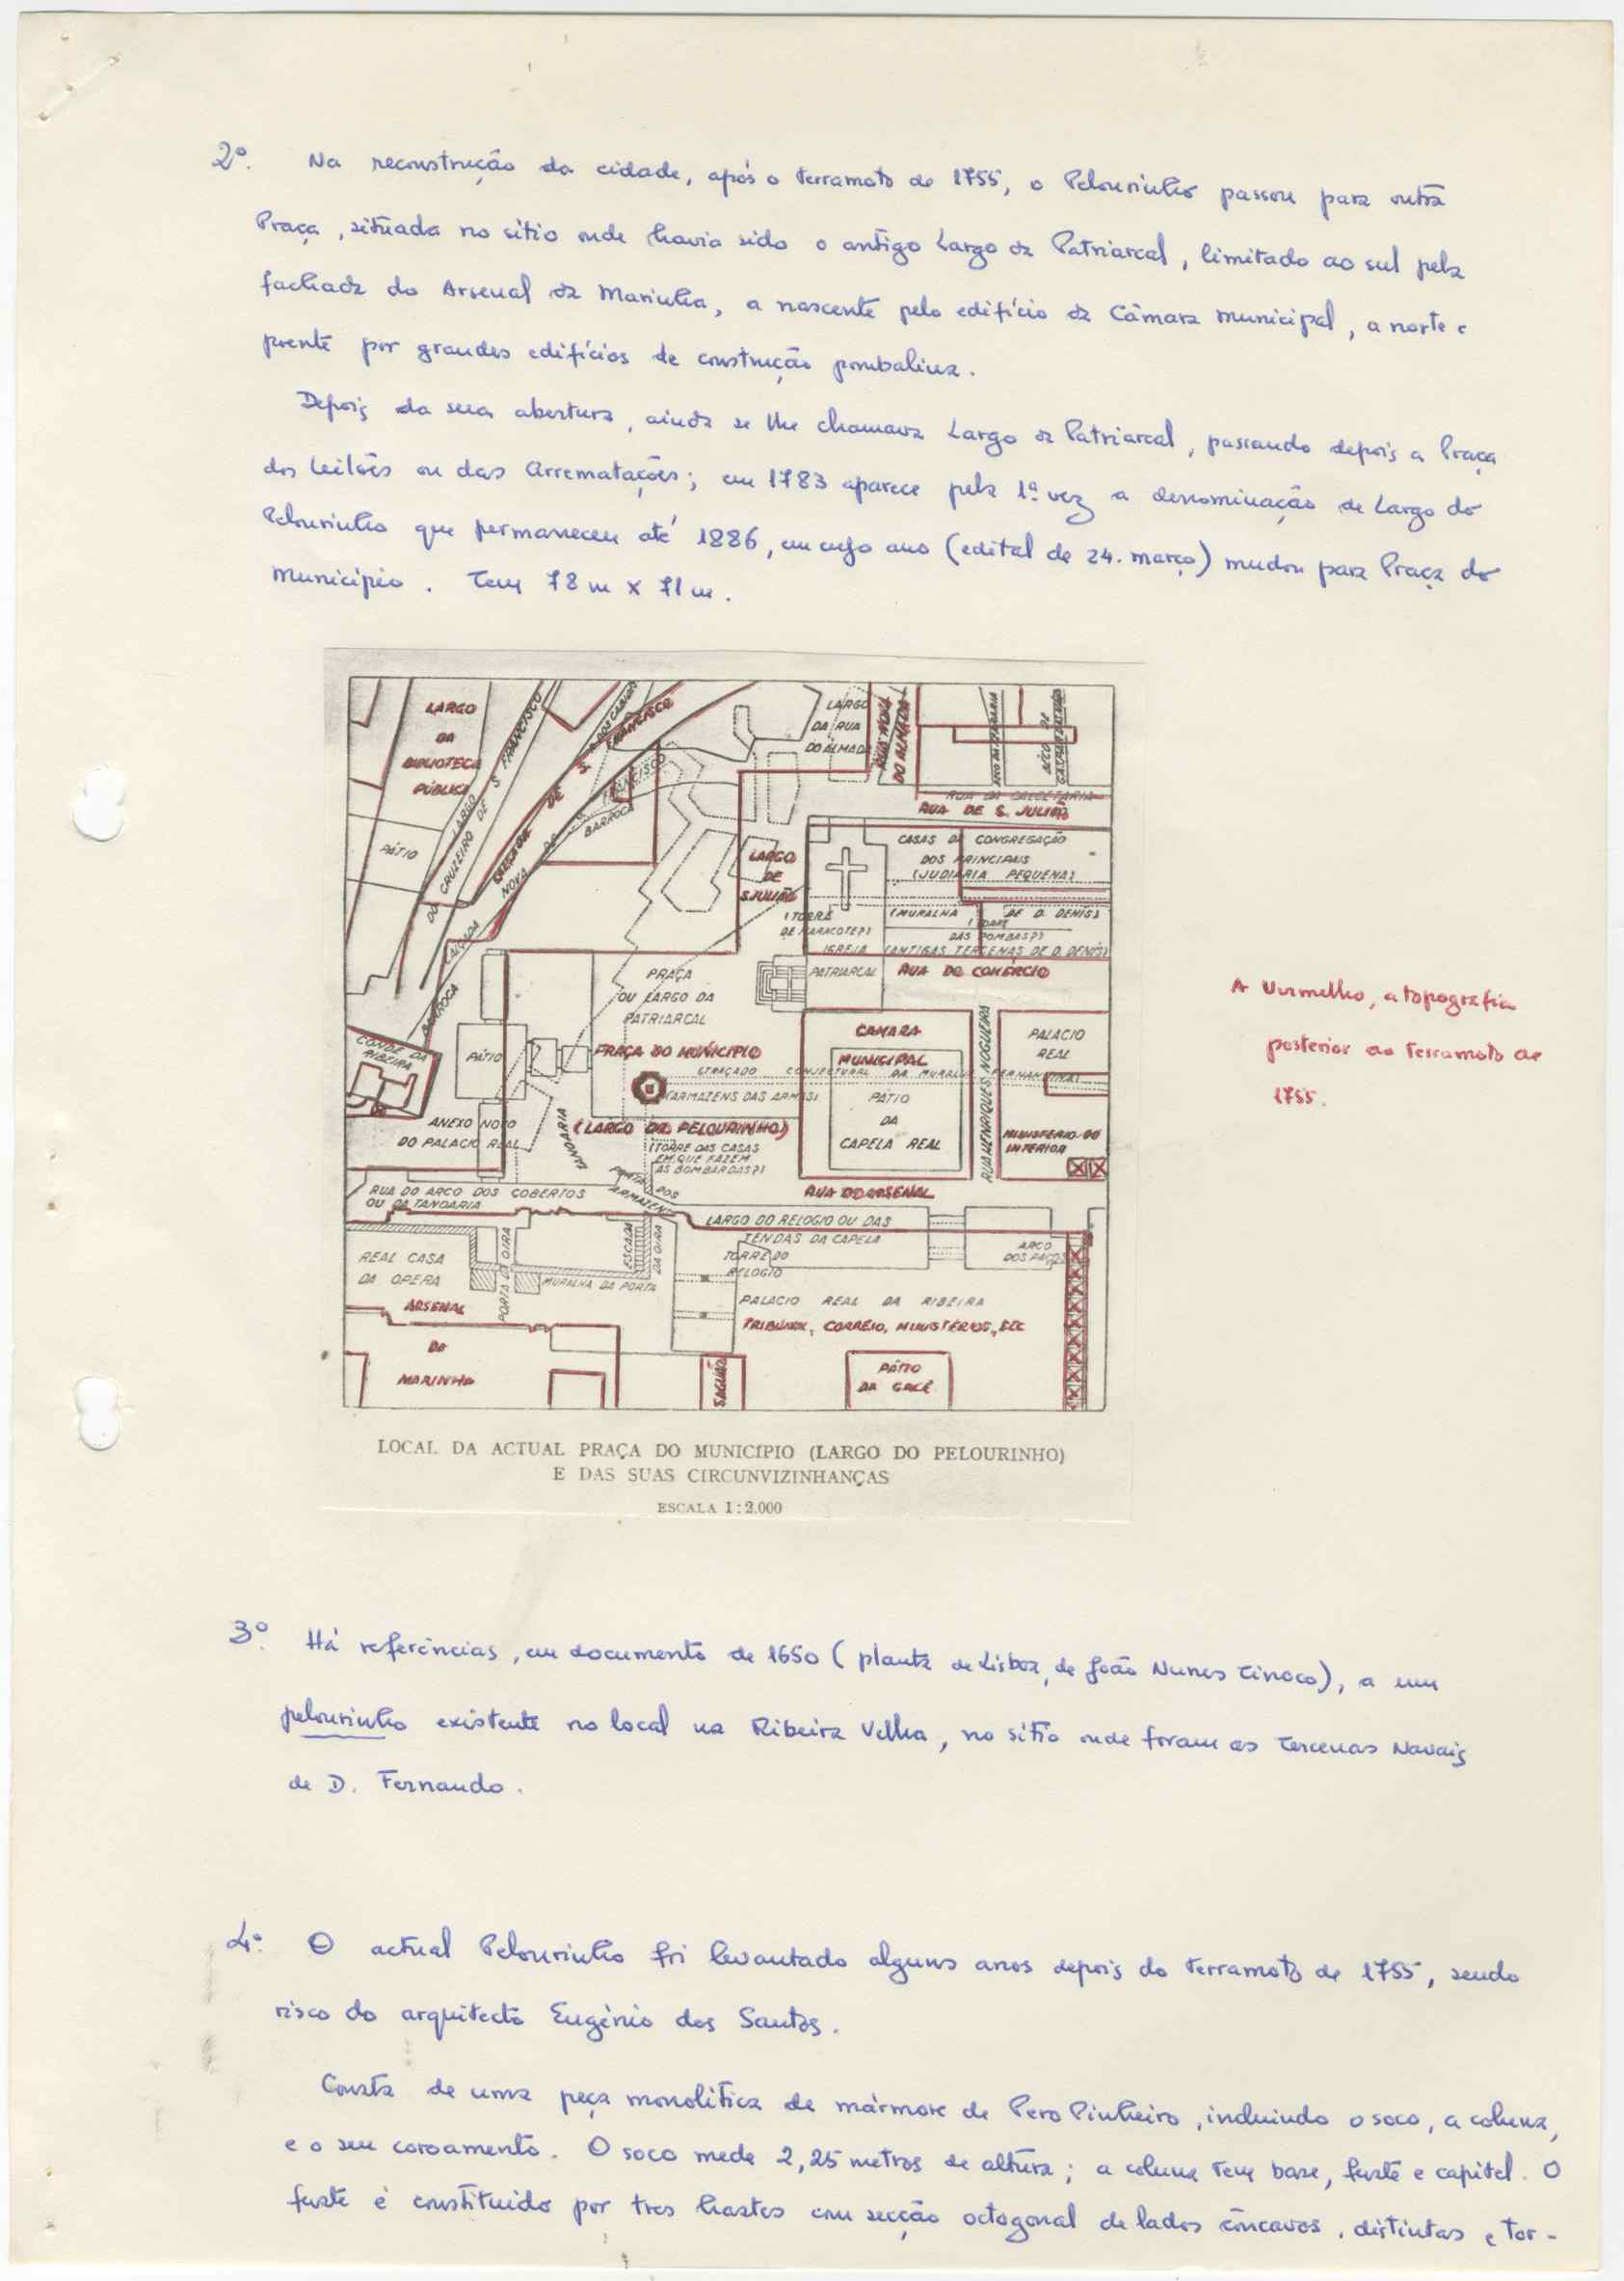 2º. Na reconstrução da cidade, após o terramoto de 1755, o Pelourinho passou para outra
Praça, situada no sitio onde havia sido o antigo Largo da Patriarcal, limitado ao sul pela
fachada do Arsenal da Marinha, a nascente pelo edifício da Câmara Municipal, a norte e
poente por grandes edifícios de construção pombalina.
Depois da sua abertura, ainda se lhe chamava Largo da Patriarcal, passando depois a Praça
dos Leilões ou das Arrematações; em 1783 aparece pela 1ª vez a denominação de Largo do
Pelourinho que permaneceu até 1886, em cujo ano (edital de 24. março) mudou para Praça do
Município. Tem 78 m x 71 m.
LARGO
DA
BIBLIOTECA
PÚBLICA
PÁTIO
LARGO
DO CRUZEIRO DE S. FRANCISCO
CALÇADA DE S. FRANCISCO
CALÇADA NOVA DE S. FRANCISCO
BARROCA
BARROCA
LARGO
DA RUA
DO ALMADA
RUA NOVA
DO ALMADA
RUA DA CALCETARIA
RUA DE S. JULIÃO
LARGO
DE
S. JULIÃO
CASAS DA CONGREGAÇÃO
DOS PRINCIPAIS
(JUDIARIA PEQUENA)
(TORRE
(MURALHA DE D. DENIS)
(TORRE
DAS POMBAS?)
IGREJA (ANTIGAS TERCENAS DE D. DENIS)
PATRIARCAL
RUA DO COMÉRCIO
PRAÇA
OU LARGO DA
PATRIARCAL
PRAÇA DO MUNICIPIO
CAMARA
MUNICIPAL
PALACIO
REAL
(TRAÇADO CONJECTURAL DA MURALHA FERNANDINA)
(ARMAZENS DAS ARMAS)
CONDE DA
RIBEIRA
PÁTIO
PÁTIO
DA
CAPELA REAL
RUA HENRIQUES NOGUEIRA
ANEXO NOVO
DO PALACIO REAL
TANOARIA
(LARGO DO PELOURINHO)
(TORRE DAS CASAS
EM QUE FAZEM
AS BOMBARDAS?)
MINISTÉRIO DO
INTERIOR
PORTA DOS
ARMAZENS
RUA DO ARCO DOS COBERTOS
OU DA TANOARIA
RUA DO ARSENAL
LARGO DO RELOGIO OU DAS
TENDAS DA CAPELA
REAL CASA
DA OPERA
PORTA DA OIRA
ESCADA
DA OIRA
MURALHA DA PORTA
TORRE DO
RELOGIO
ARCO
DOS PAÇOS
PALACIO REAL DA RIBEIRA
TRIBUNAL, CORREIO, MINISTÉRIOS, ETC
ARSENAL
DA
MARINHA
SAGUÃO
PÁTIO
DA GALÉ
A vermelho, a topografia
posterior ao terramoto de
1755.
LOCAL DA ACTUAL PRAÇA DO MUNICÍPIO (LARGO DO PELOURINHO)
E DAS SUAS CIRCUNVIZINHANÇAS
ESCALA 1:2.000
3º. Há referências, em documento de 1650 (planta de Lisboa, de João Nunes Tinoco), a um
pelourinho existente no local na Ribeira Velha, no sítio onde foram as Tercenas Navais
de D. Fernando.
4º. O actual Pelourinho foi levantado alguns anos depois do terramoto de 1755, sendo
risco do arquitecto Eugénio dos Santos.
Consta de uma peça monolítica de mármore de Pero Pinheiro, incluindo o soco, a coluna,
e o seu coroamento. O soco mede 2,25 metros de altura; a coluna tem base, fuste e capitel. O
fuste é constituido por tres hastes com secção octogonal de lados côncavos, distintas e tor-